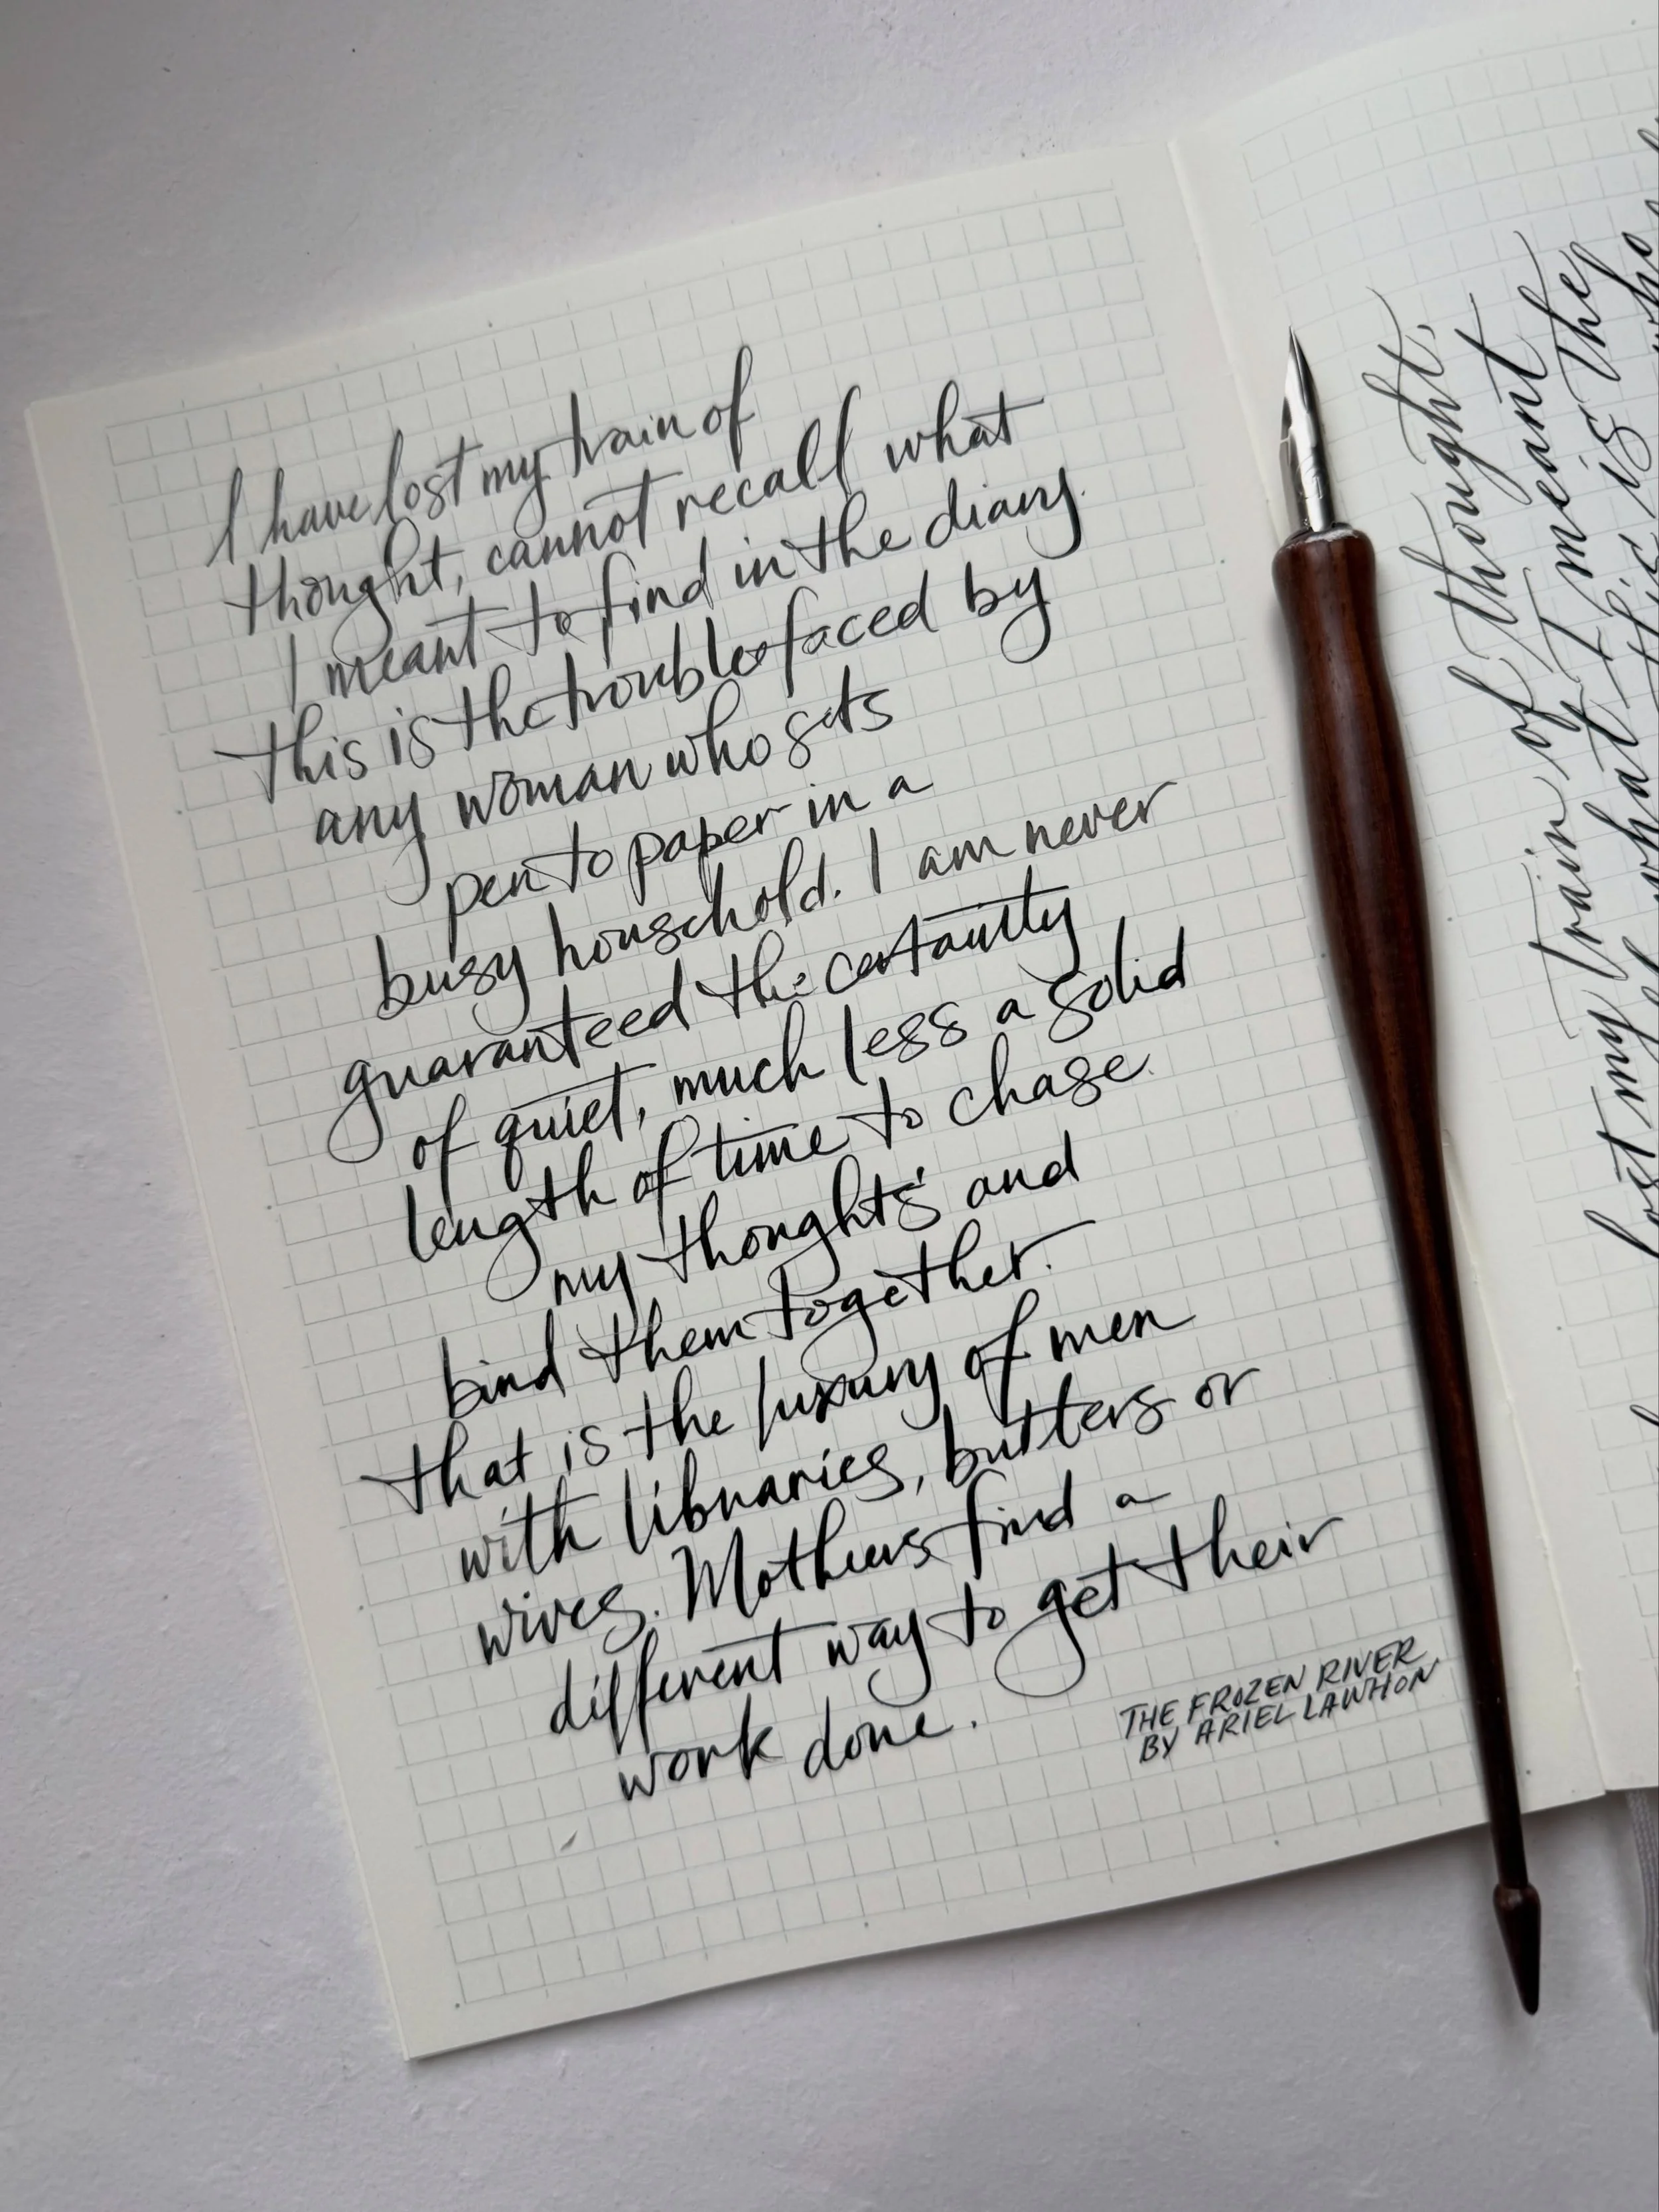 I have lost my train of
thought, cannot recall what
I meant to find in the diary.
this is the trouble faced by
any woman who sets
pen to paper in a
busy household. I am never
guaranteed the certainty
of quiet, much less a solid
length of time to chase
my thoughts and
bind them together.
that is the luxury of men
with libraries, butters or
wives. Mothers find a
different way to get their
work done.
THE FROZEN RIVER
BY ARIEL LAWHON
thought,
train of I meant the
lost my what this is who